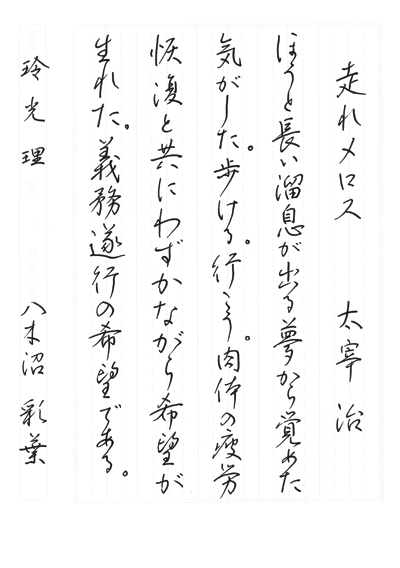 走れメロス 太宰治
ほうと長い溜息が出る夢から覚めた
気がした。歩ける。行こう。肉体の疲労
恢復と共にわずかながら希望が
生れた。義務遂行の希望である。
玲光理 八木沼彩葉